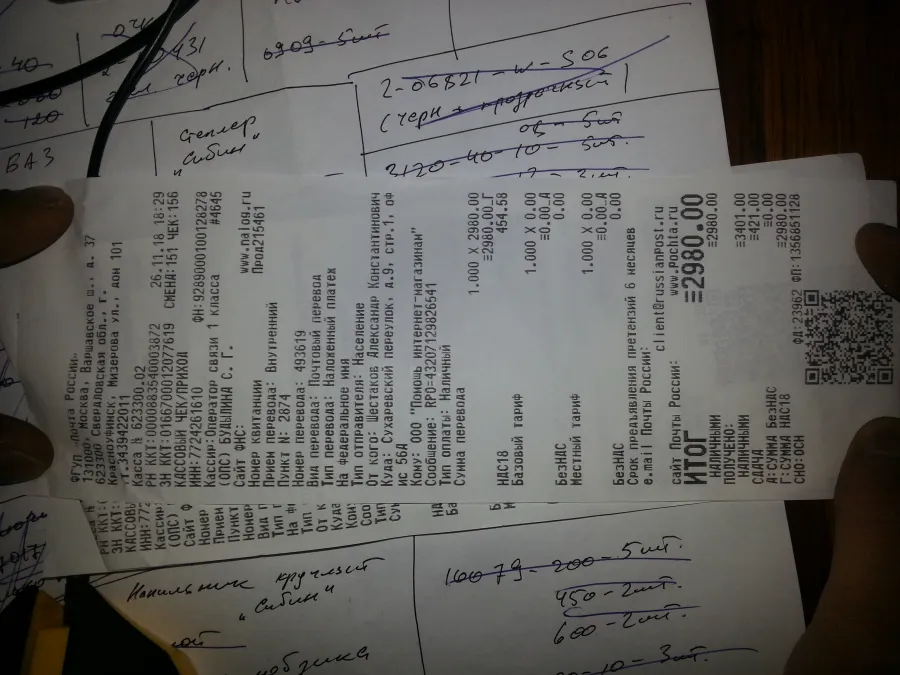 ФГУП «Почта России»
131000, Москва, Варшавское ш., д. 37
623300 Свердловская обл., г.
Красноуфимск, Мизерова ул., дом 101
тт.3439422011
Касса № 623300.02 26.11.18 18:29
РН ККТ:0000883540003872 СМЕНА:151 ЧЕК:156
ЗН ККТ:0166700012077619
КАССОВЫЙ ЧЕК/ПРИХОД
ИНН:7724261610 ФН:9289000100128278
Кассир:Оператор связи 1 класса #4645
(ОПС) БУДЫЛИНА С. Г.
Сайт ФНС: www.nalog.ru
Номер квитанции Прод215461
Прием перевода: Внутренний
Пункт N: 2874
Номер перевода: 493619
Вид перевода: Почтовый перевод
Тип перевода: Наложенный платеж
На федеральное имя
Тип отправителя: Население
От кого: Шестаков Александр Константинович
Куда: Сухаревский переулок, д.9, стр.1, оф
ис 56А
Кому: ООО "Помощь интернет-магазинам"
Сообщение: RPO=43207129826541
Тип оплаты: Наличный
Сумма перевода
1.000 X 2980.00
≡2980.00_Г
НДС18 454.58
Базовый тариф
1.000 X 0.00
≡0.00_А
БезНДС 0.00
Местный тариф
1.000 X 0.00
≡0.00_А
БезНДС 0.00
Срок предъявления претензий 6 месяцев
e.mail Почты России:
client@russianpost.ru
сайт Почты России: www.pochta.ru
ИТОГ ≡2980.00
НАЛИЧНЫМИ ≡2980.00
ПОЛУЧЕНО:
НАЛИЧНЫМИ ≡3401.00
СДАЧА ≡421.00
А:СУММА БезНДС ≡0.00
Г:СУММА НДС18 ≡2980.00
СНО:ОСН ФД:23962 ФП:1356851128
6909-5шт
2-06821-w-S06
(черн + прозрачный)
3120-40-10-5шт.
БАЗ
Степлер
"Сибин"
Напильник круглый
"Сибин"
16079-200-5шт.
450-2шт.
600-2шт.